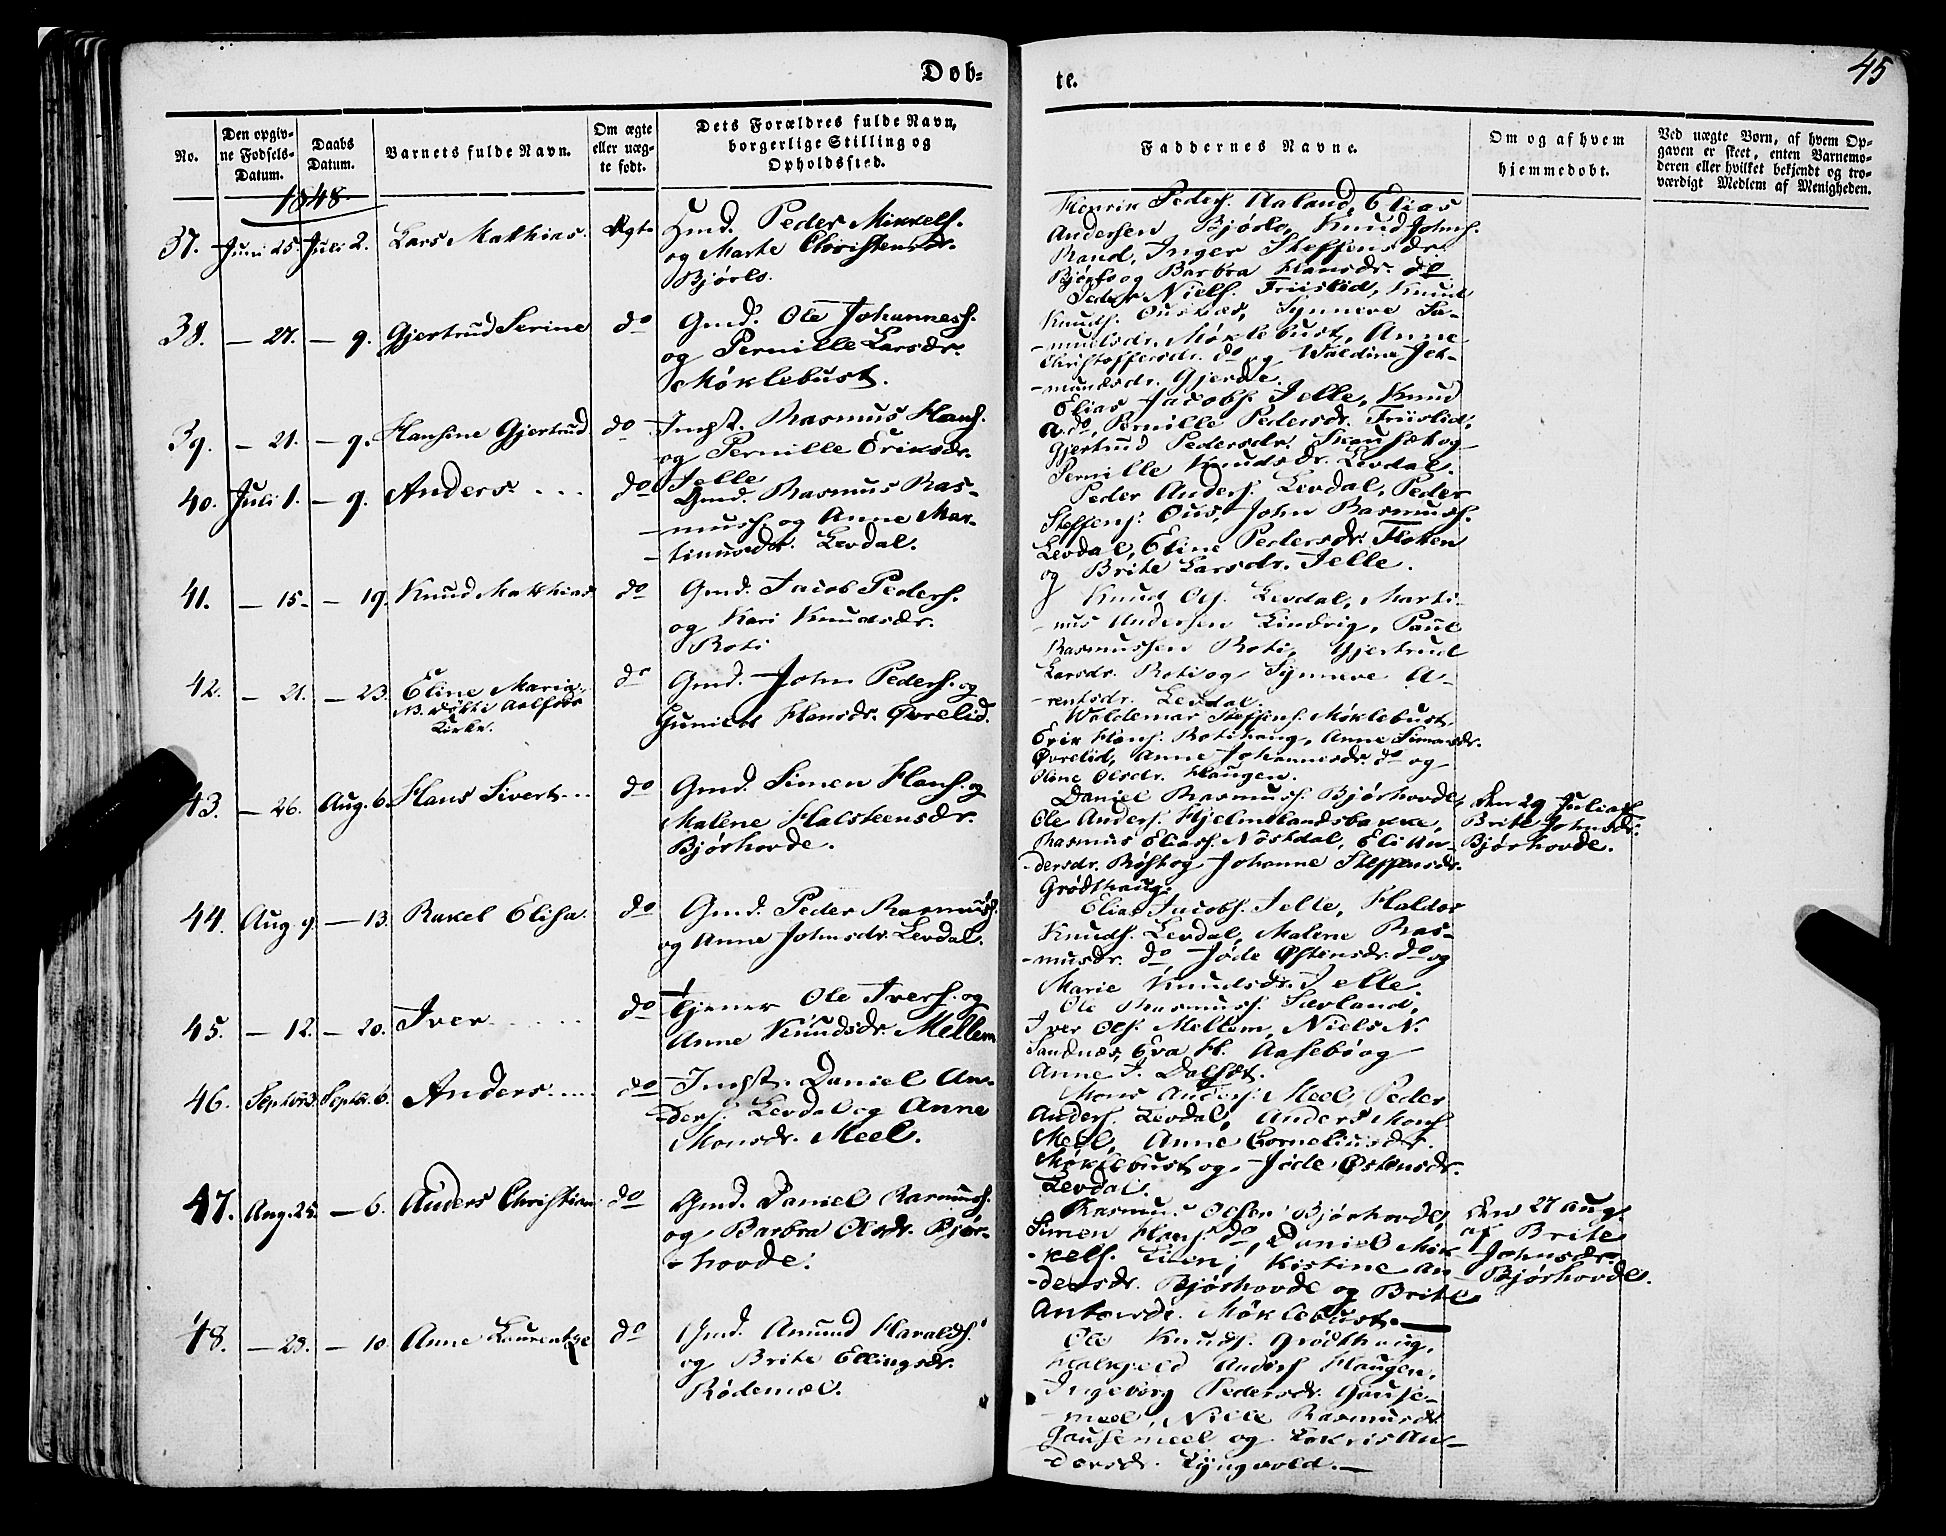 Døb-
te.
45
No.
Den opgiv-
ne Fødsels-
Datum.
Daabs
Datum.
Barnets fulde Navn.
Om ægte
eller uæg-
te født.
Dets Forældres fulde Navn,
borgerlige Stilling og
Opholdssted.
Faddernes Navne.
Om og af hvem
hjemmedøbt.
Ved uægte Børn, af hvem Op-
gaven er skeet, enten Barnemo-
deren eller hvilket bekjendt og tro-
værdigt Medlem af Menigheden.
1848.
37. Juni 25. Juli 2. Lars Mathias. Ægt.
Gmd. Peder Mikkels.
og Marte Christensdr.
Bjørlo.
Henrik Peders. Aaland, Elias
Andersen Bjørlo, Knud Johns.
Rand, Inger Steffensdr.
Bjørlo og Barbra Hansdr. do
38. — 27. — 9. Gjertrud Serine do
Gmd. Ole Johanness.
og Pernille Larsdr.
Møklebust.
Peder Niels. Friislid, Knud
Knuds. Synneve Sa-
-muelsdr. Møklebust, Anne
Christoffersdr. do og Waldine Jet-
-mundsdr. Gjerde.
39. — 21. — 9. Hansine Gjertrud do
Indst. Rasmus Hans.
og Pernille Eriksdr.
Jelle
Elias Jacobs. Jelle, Knud
A. do, Pernille Pedersdr. Friislid,
Gjertrud Pedersdr. og
Pernille Knudsdr. Levdal.
40. Juli 1. — 9. Anders. . . . do
Gmd. Rasmus Ras-
-muss. og Anne Mar-
-tinusdr. Levdal.
Peder Anders. Levdal, Peder
Steffens. Ous, John Rasmuss.
Levdal, Eline Pedersdr. Floten
og Brite Larsdr. Jelle.
41. — 15. — 19. Knud Mathias do
Gmd. Jacob Peders.
og Kari Knudsdr.
Roti
Knud Ols. Levdal, Marti-
-nus Andersen Lindvig, Paul
Rasmussen Roti, Gjertrud
Larsdr. Roti og Synneve A-
-rentsdr. Levdal.
42. — 21. — 23. Eline Maria. do
NB. døbt i Dalsfjord
Kirke.
Gmd. John Peders. og
Gunild Hansdr. Øvrelid.
Waldemar Steffens. Møklebust,
Erik Hans. Rotihaug, Anne Simonsdr.
Øvrelid, Anne Johannesdr. do og
Oline Olsdr. Haugen.
43. — 26. Aug. 6. Hans Sivert. . . do
Gmd. Simen Hans. og
Malene Halsteensdr.
Bjørhovde.
Daniel Rasmuss. Bjørhovde,
Ole Anders. Hjelmelandsbakke,
Rasmus Eliass. Nøstdal, Eli An-
-dersdr. og Johanne Steffensdr.
Grødthaug.
Den 29 Juli af
Brite Johnsdr.
Bjørhovde.
44. Aug. 9. — 13. Rakel Elisa. do
Gmd. Peder Rasmuss.
og Anne Johnsdr. Levdal.
Elias Jacobs. Jelle, Haldor
Knuds. Levdal, Malene Ras-
-musdr. do Jøde Østensdr. do og
Marie Knudsdr. Jelle.
45. — 12. — 20. Iver . . . . . do
Tjener Ole Ivers. og
Anne Knudsdr. Mellem
Ole Rasmuss. Sævland,
Iver Ols. Mellem, Niels N.
Sandnæs, Eva H. Aasebø og
Anne J.
46. Septbr 3. Septbr. 6. Anders. . . . . do
Indst. Daniel An-
-ders. Levdal og Anne
Monsdr. Meel.
Mons Anders. Meel, Peder
Anders. Levdal, Anders Mons.
Meel, Anne Corneliusdr.
Møklebust og Jøde Østensdr.
Levdal.
47. Aug. 25. — 6. Anders Christian do
Gmd. Daniel Rasmuss.
og Barbra Olsdr. Bjør-
-hovde.
Rasmus Olsen Bjørhovde,
Simen Hans. do, Daniel Mik-
-kels. Lien, Kistine An-
-dersdr. Bjørhovde og Brite
Antonsdr. Møklebust. —
Den 27 Aug.
af Brite
Johnsdr.
Bjørhovde.
48. — 23. — 10. Anne Laurentze do
Gmd. Amund Haralds.
og Brite Ellingsdr.
Rødemæl.
Ole Knuds. Grødthaug,
Anders. Haugen,
Ingeborg Pedersdr. Gause-
-meel, Nille Rasmusdr.
Gausemeel og An-
-dersdr. Lyngvold. —